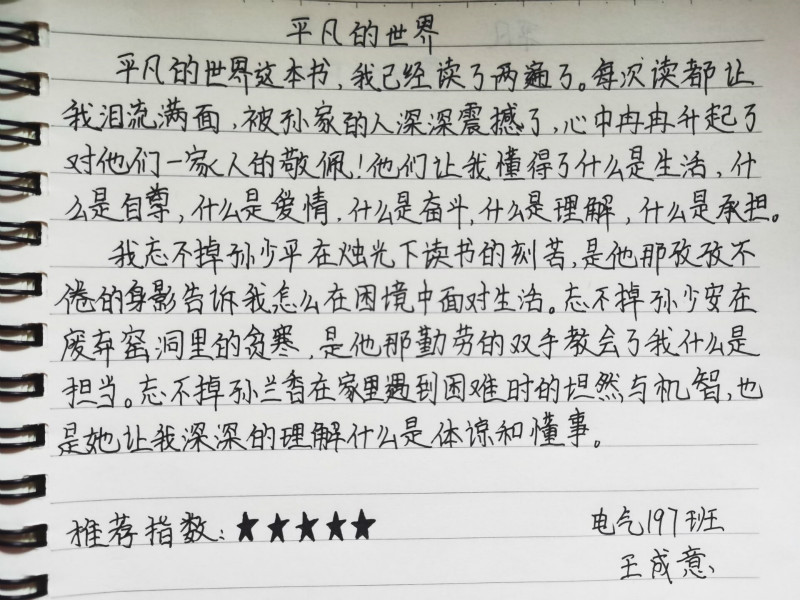 平凡的世界
平凡的世界这本书，我已经读了两遍了。每次读都让
我泪流满面，被孙家的人深深震撼了，心中冉冉升起了
对他们一家人的敬佩！他们让我懂得了什么是生活，什
么是自尊，什么是爱情，什么是奋斗，什么是理解，什么是承担。
我忘不掉孙少平在烛光下读书的刻苦，是他那孜孜不
倦的身影告诉我怎么在困境中面对生活。忘不掉孙少安在
废弃窑洞里的贫寒，是他那勤劳的双手教会了我什么是
担当。忘不掉孙兰香在家里遇到困难时的坦然与机智，也
是她让我深深的理解什么是体谅和懂事。
推荐指数：★★★★★
电气197班
王成意